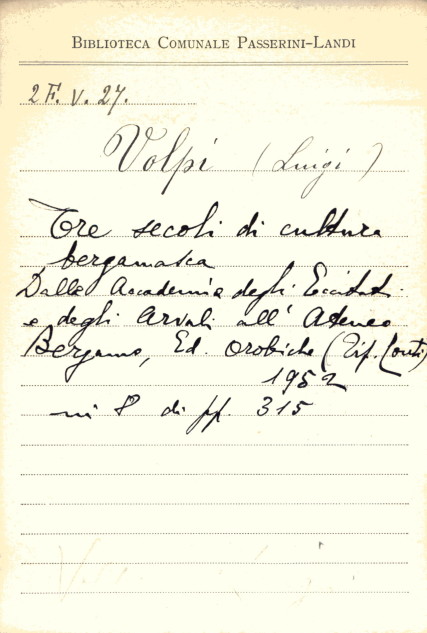 BIBLIOTECA COMUNALE PASSERINI-LANDI
2 F. V. 27.
Volpi (Luigi)
Tre secoli di cultura
bergamasca
Dalle Accademia degli Eccitati
e degli Arvali all' Ateneo
Bergamo, Ed. Orobiche (Tip. Conti)
1952
in 8 di pp. 315